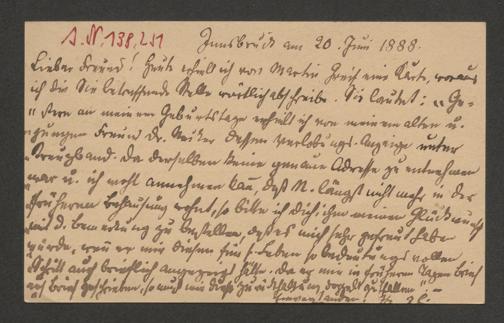 J. N. 138,251
Innsbruck am 20. Juni 1888.
Lieber Freund! Heute erhielt ich von Martin Greif eine Karte, woraus
ich die Sie betreffende Stelle wörtlich abschreibe. Sie lautet: „Ge-
„stern an meinem Geburtstage erhielt ich von meinem alten u.
jungen Freund Dr. dessen Verlobungs-Anzeige unter
Kreuzband. Da derselben keine genaue Adresse zu entnehmen
war u. ich nicht annehmen kann, daß M. längst nicht mehr in der
früheren Behausung wohnt, so bitte ich dich, ihm meinen Glückwunsch
mit d. Bemerkung zu bestellen, daß es mich sehr gefreut habe
würde, wenn er mir diesen für s. Leben so bedeutungsvollen
Schritt auch brieflich angezeigt hätte. Da er mir in früheren Tagen
geschrieben, so muß mir diese Zurückhaltung doppelt auffallen" –